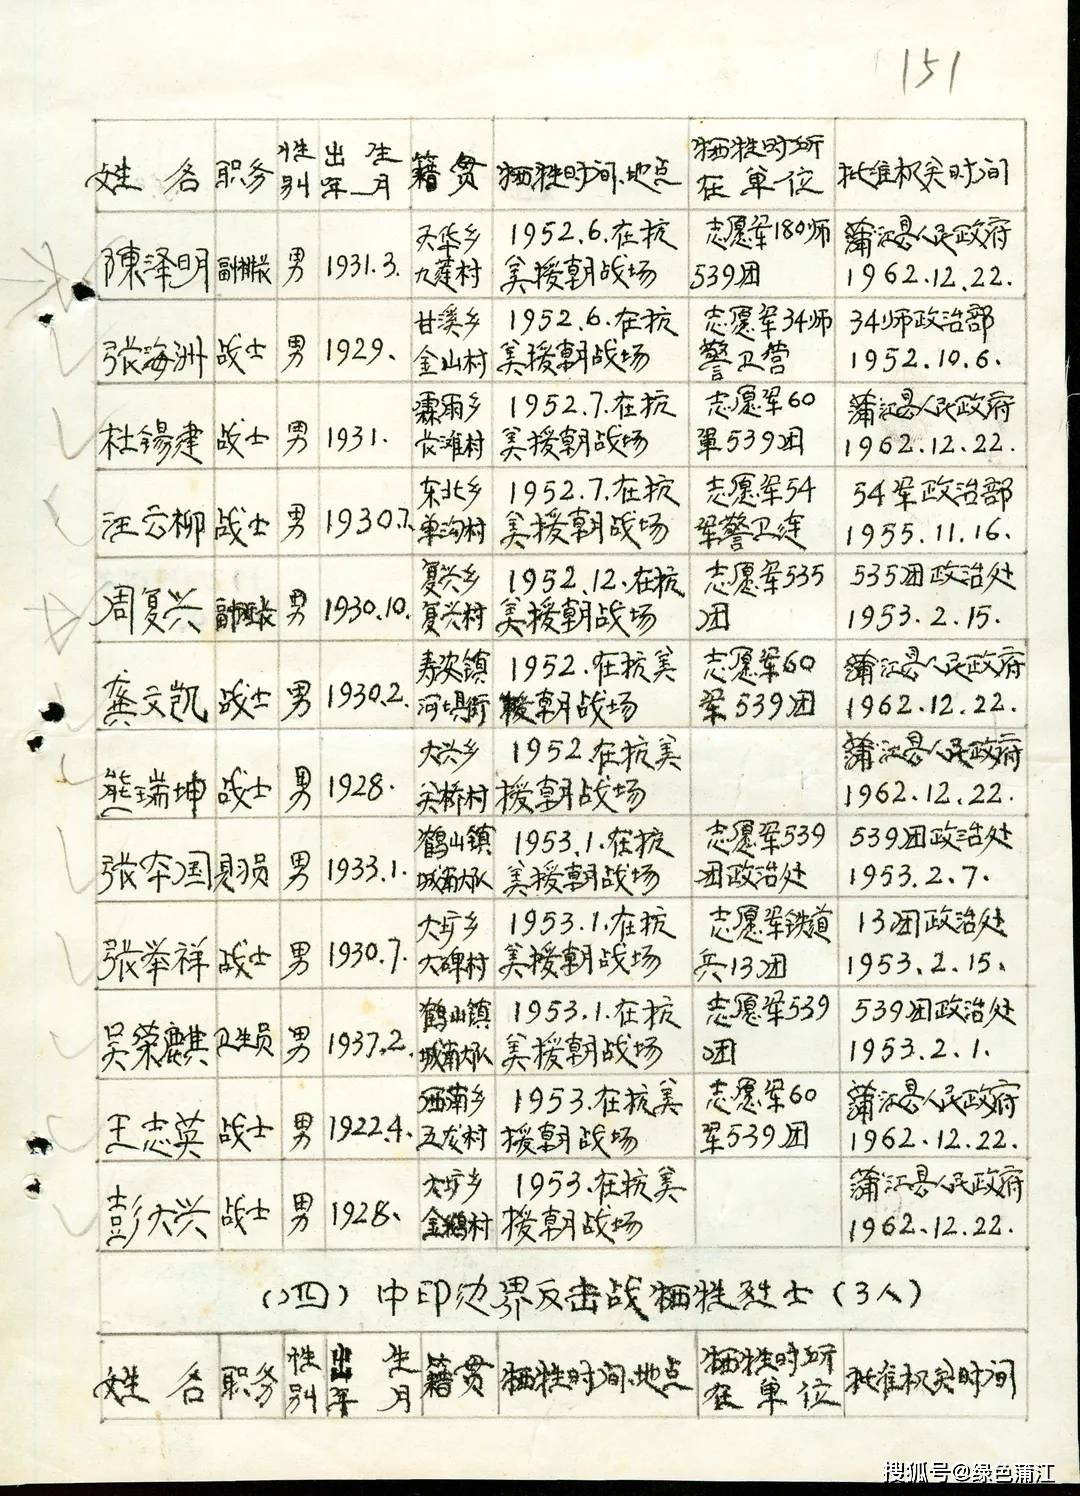 151
姓名 职务 性别 出生年月 籍贯 牺牲时间、地点 牺牲时所在单位 批准机关时间
陳泽明 副排长 男 1931.3. 天华乡九莲村 1952.6.在抗美援朝战场 志愿军180师539团 蒲江县人民政府1962.12.22.
张海洲 战士 男 1929. 甘溪乡金山村 1952.6.在抗美援朝战场 志愿军34师警卫营 34师政治部1952.10.6.
杜锡建 战士 男 1931. 霖雨乡长滩村 1952.7.在抗美援朝战场 志愿军60军539团 蒲江县人民政府1962.12.22.
汪云柳 战士 男 1930.7. 东北乡单沟村 1952.7.在抗美援朝战场 志愿军54军警卫连 54军政治部1955.11.16.
周复兴 男 1930.10. 复兴乡复兴村 1952.12.在抗美援朝战场 志愿军535团 535团政治处1953.2.15.
龚文凯 战士 男 1930.2. 寿安镇河坝街 1952.在抗美援朝战场 志愿军60军539团 蒲江县人民政府1962.12.22.
熊瑞坤 战士 男 1928. 大兴乡关桥村 1952.在抗美援朝战场 蒲江县人民政府1962.12.22.
张本国 见习员 男 1933.1. 鹤山镇城南大队 1953.1.在抗美援朝战场 志愿军539团政治处 539团政治处1953.2.7.
张举祥 战士 男 1930.7. 大圹乡大碑村 1953.1.在抗美援朝战场 志愿军铁道兵13团 13团政治处1953.2.15.
吴荣麒 卫生员 男 1937.2. 鹤山镇城南大队 1953.1.在抗美援朝战场 志愿军539团 539团政治处1953.2.1.
王志英 战士 男 1922.4. 西南乡五龙村 1953.在抗美援朝战场 志愿军60军539团 蒲江县人民政府1962.12.22.
彭大兴 战士 男 1928. 大圹乡金鹅村 1953.在抗美援朝战场 蒲江县人民政府1962.12.22.
(四)中印边界反击战牺牲烈士(3人)
姓名 职务 性别 出生年月 籍贯 牺牲时间、地点 牺牲时所在单位 批准机关时间
搜狐号@绿色蒲江